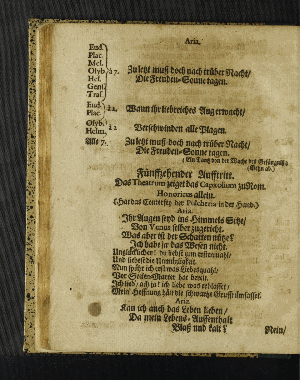 Aria.
Eud.
Plac.
Mel.
Olyb.
Hel.
Gens.
Tras.
à 7.
Zu letzt muß doch nach trüber Nacht/
Die Freuden-Sonne tagen.
Eud.
Plac.
à 2.
Wann ihr liebreiches Aug erwacht/
Olyb.
Helm.
à 2
Verschwinden alle Plagen.
Alle 7.
Zu letzt muß doch nach trüber Nacht/
Die Freuden-Sonne tagen.
(Ein Tantz von der Wacht des Gefängniß
Gehn ab.)
Fünffzehender Aufftritt.
Das Theatrum zeiget das Capitolium zu Rom.
Honoricus allein.
(Hat das Conterfey der Pulcheria in der Hand.)
Aria.
Ihr Augen seyd ins Himmels Sitz/
Von Venus selber zugericht.
Was aber ist der Schatten nütze?
Ich habe ja das Wesen nicht.
Und liebest die Unmüglichkeit.
Nun spühr ich erst was Liebesquahl/
Ich lieb/ ach ja! ich liebe was erblasset/
Mein Hoffnung hält die schwartze Grufft umfasset.
Aria.
Kan ich auch das Leben lieben/
Da mein Lebens-Auffenthalt
Blaß und kalt?
Nein/